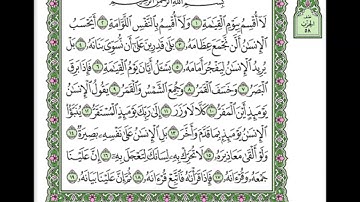 بِسْمِ اللَّهِ الرَّحْمَٰنِ الرَّحِيمِ
لَا أُقْسِمُ بِيَوْمِ الْقِيَامَةِ ١ وَلَا أُقْسِمُ بِالنَّفْسِ اللَّوَّامَةِ ٢ أَيَحْسَبُ
الْإِنسَانُ أَلَّن نَّجْمَعَ عِظَامَهُ ٣ بَلَىٰ قَادِرِينَ عَلَىٰ أَن نُّسَوِّيَ بَنَانَهُ ٤ بَلْ
يُرِيدُ الْإِنسَانُ لِيَفْجُرَ أَمَامَهُ ٥ يَسْأَلُ أَيَّانَ يَوْمُ الْقِيَامَةِ ٦ فَإِذَا بَرِقَ
الْبَصَرُ ٧ وَخَسَفَ الْقَمَرُ ٨ وَجُمِعَ الشَّمْسُ وَالْقَمَرُ ٩ يَقُولُ الْإِنسَانُ
يَوْمَئِذٍ أَيْنَ الْمَفَرُّ ١٠ كَلَّا لَا وَزَرَ ١١ إِلَىٰ رَبِّكَ يَوْمَئِذٍ الْمُسْتَقَرُّ ١٢ يُنَبَّأُ
الْإِنسَانُ يَوْمَئِذٍ بِمَا قَدَّمَ وَأَخَّرَ ١٣ بَلِ الْإِنسَانُ عَلَىٰ نَفْسِهِ بَصِيرَةٌ ١٤
وَلَوْ أَلْقَىٰ مَعَاذِيرَهُ ١٥ لَا تُحَرِّكْ بِهِ لِسَانَكَ لِتَعْجَلَ بِهِ ١٦ إِنَّ عَلَيْنَا
جَمْعَهُ وَقُرْآنَهُ ١٧ فَإِذَا قَرَأْنَاهُ فَاتَّبِعْ قُرْآنَهُ ١٨ ثُمَّ إِنَّ عَلَيْنَا بَيَانَهُ ١٩
الحزب
٥٨